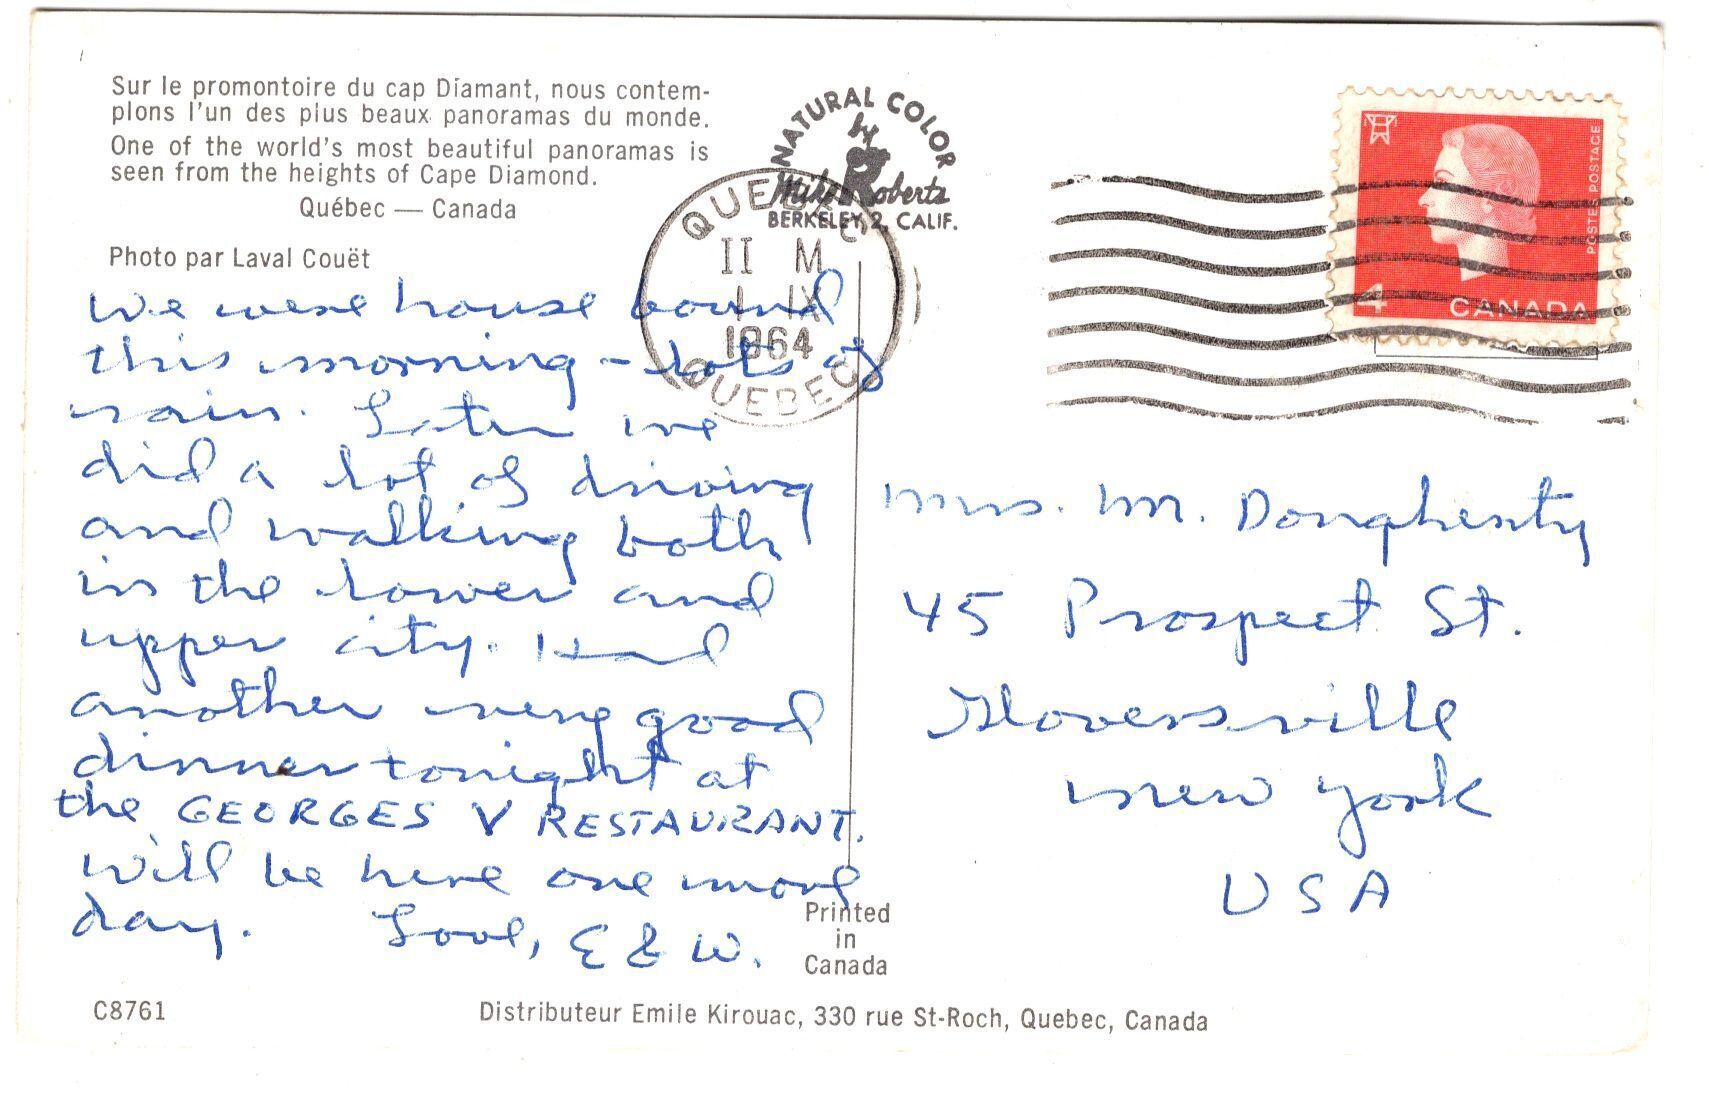 Sur le promontoire du cap Diamant, nous contem-
plons l'un des plus beaux panoramas du monde.
One of the world's most beautiful panoramas is
seen from the heights of Cape Diamond.
Québec — Canada
Photo par Laval Couët
We were house bound
this morning - lots of
rain. Later we
did a lot of driving
and walking both
in the lower and
upper city. Had
another very good
dinner tonight at
the GEORGES V RESTAURANT.
Will be here one more
day. Love, E & W.
C8761
NATURAL COLOR
by
Mike Roberts
BERKELEY 2, CALIF.
QUEBEC
II M
I IX
1964
QUEBEC
POSTES POSTAGE
4 CANADA
Mrs. M. Dougherty
45 Prospect St.
Gloversville
New York
USA
Printed
in
Canada
Distributeur Emile Kirouac, 330 rue St-Roch, Quebec, Canada